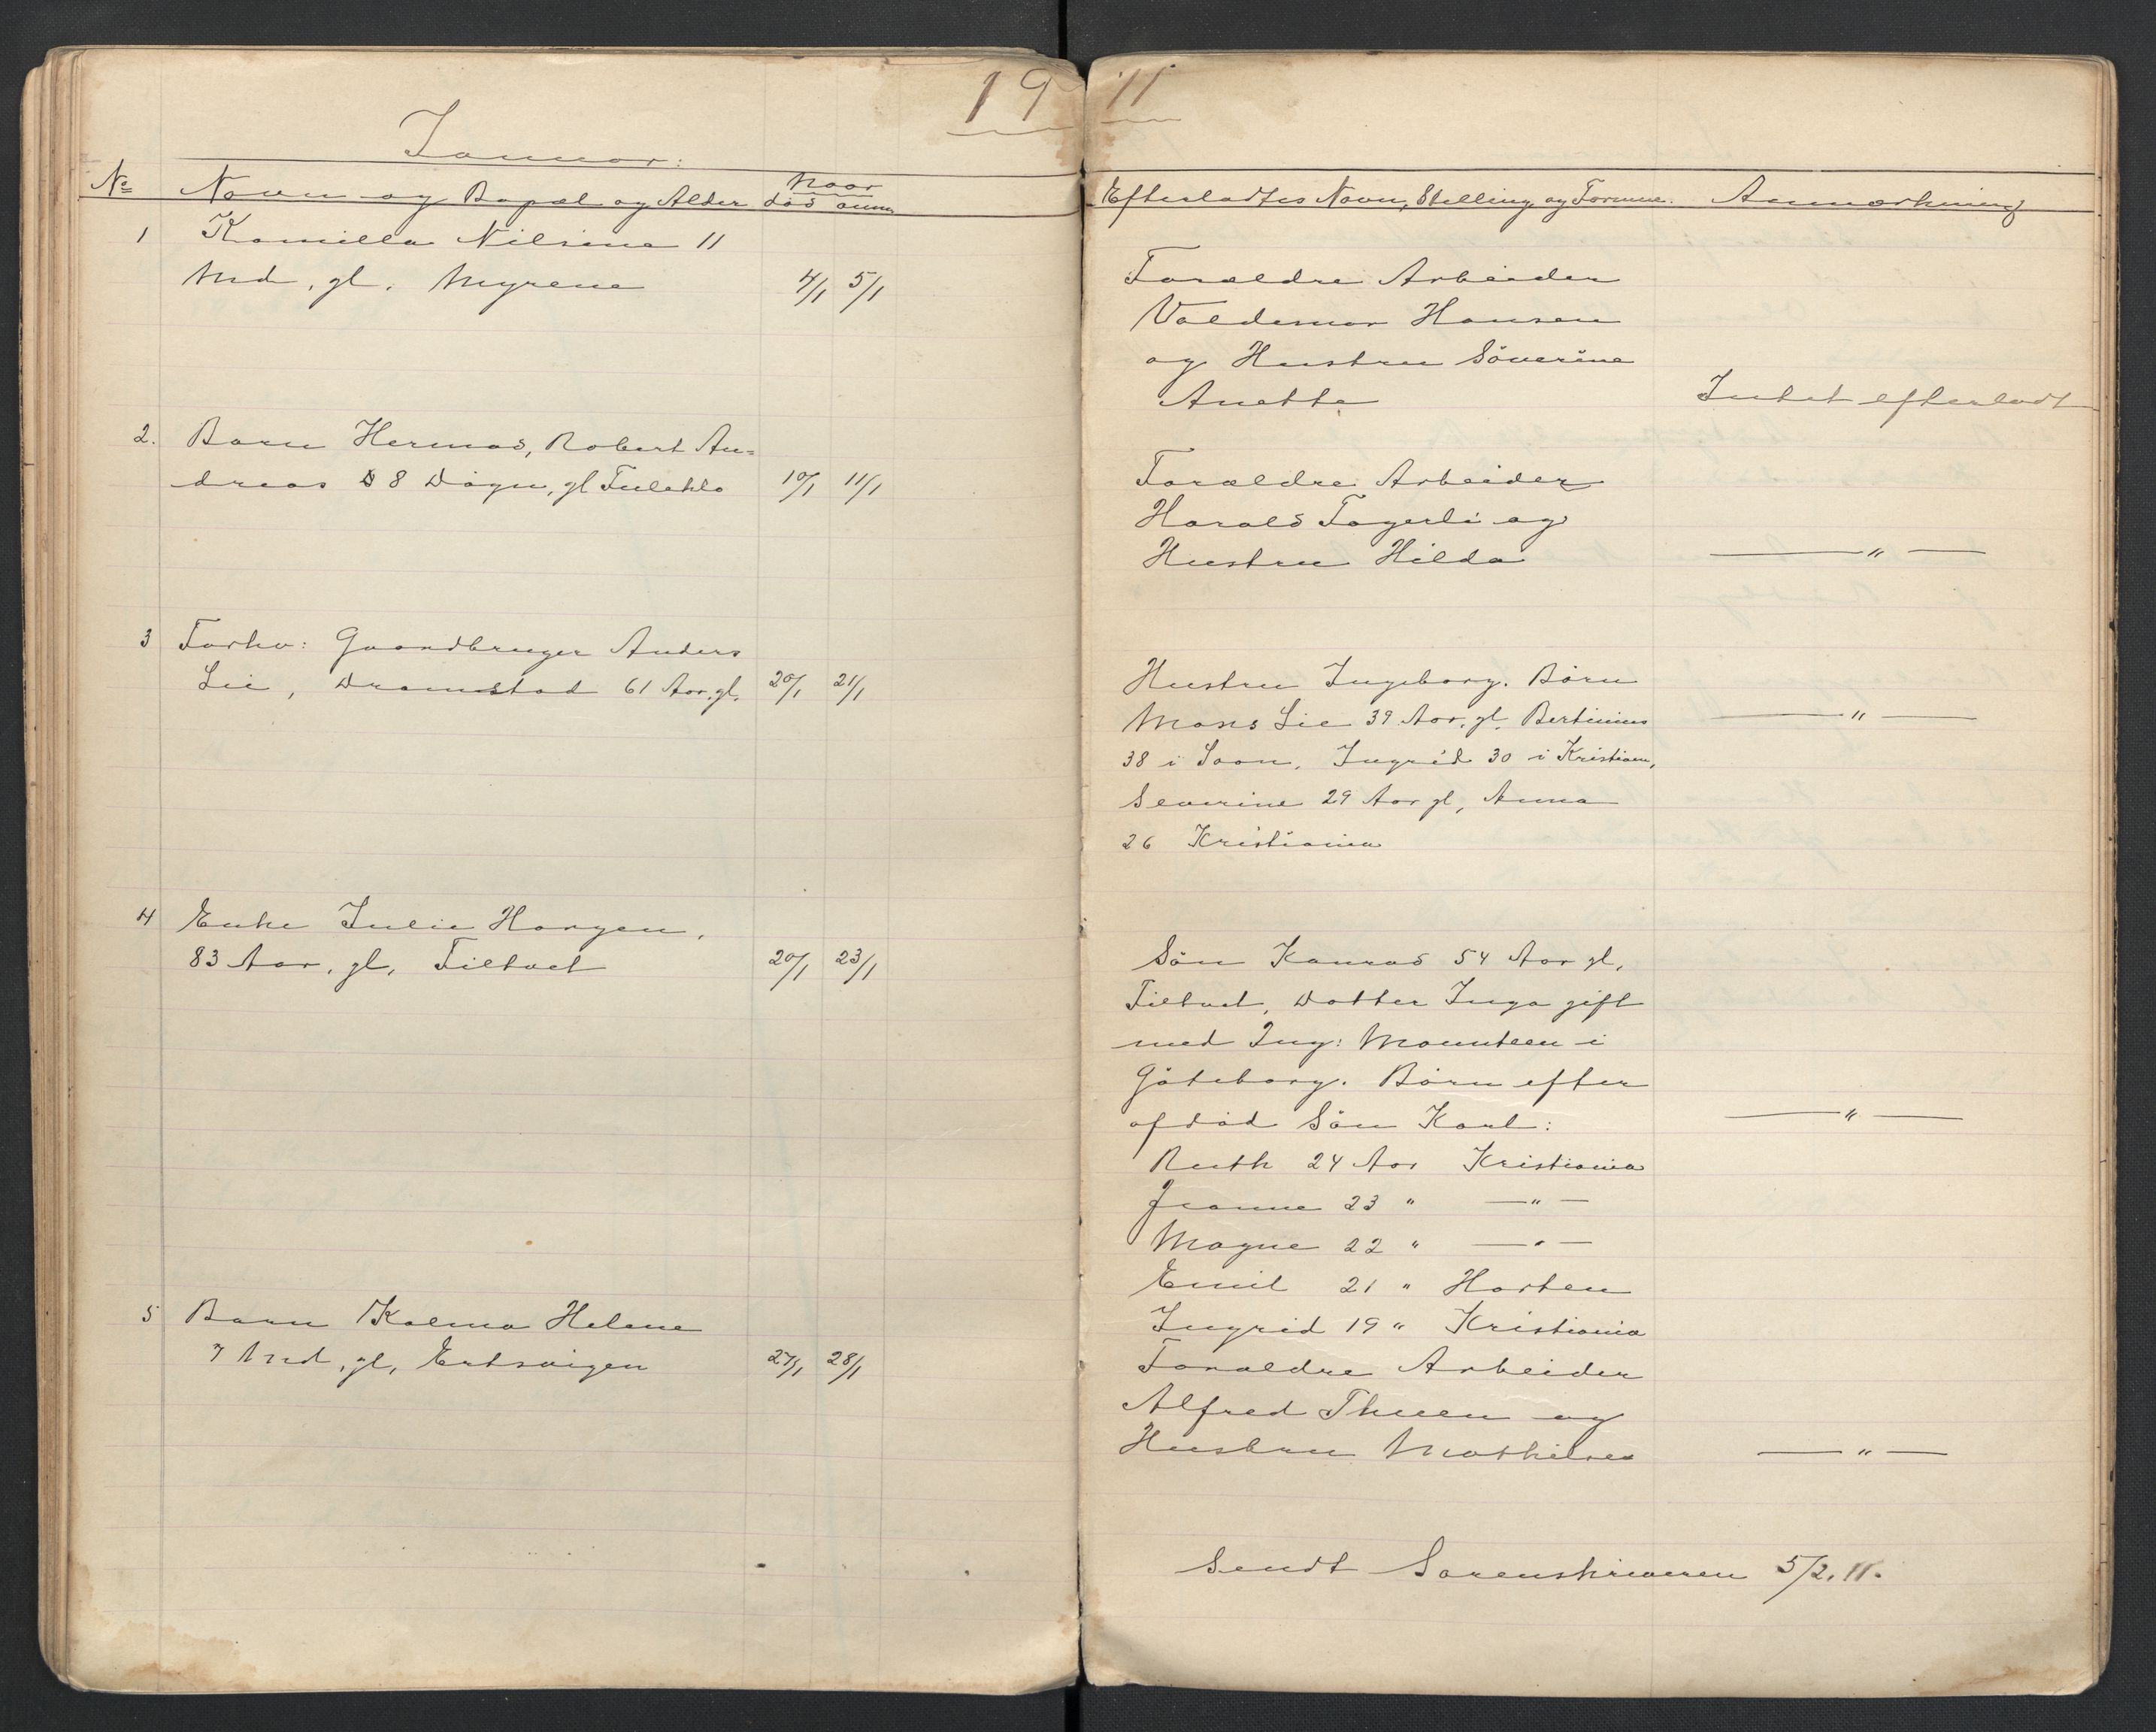 19 11
Januar:
No Navn og Bopæl og Alder
Naar
død anm.
Efterladtes Navn, Stilling og Formue. Anmærkning
1 Kamilla Nilsine 11
Md, gl, Myrene 4/1 5/1
Forældre Arbeider
Valdemar Hansen
og Hustru Söverine
Anette Intet efterladt
2. Barn Hermod, Robert An=
dreas 8 Døgn, gl 10/1 11/1
Forældre Arbeider
Harald Fagerli og
Hustru Hilda — " —
3 Forhv: Gaardbruger Anders
Lie, Dramstad 61 Aar, gl. 20/1 21/1
Hustru Ingeborg. Börn
Mons Lie 39 Aar, gl. Bertinius — " —
38 i Soon, Ingrid 30 i Kristiani,
Severine 29 Aar gl, Anna
26 Kristiania
4 Enke Julie Horgen,
83 Aar, gl, Filtvet 20/1 23/1
Sön Konrad 54 Aar gl,
Filtvet, Datter Inga gift
med Ing: i
Göteborg. Börn efter
afdöd Sön Karl: — " —
Ruth 24 Aar Kristiania
Jeanne 23 " — " —
Magne 22 " — " —
Emil 21 " Horten
Ingrid 19 " Kristiania
5 Barn Kalma Helene
7 Md, gl, Ertsvigen 27/1 28/1
Forældre Arbeider
Alfred Thuen og
Hustru Mathilde — " —
Sendt Sorenskriveren 5/2. 11.